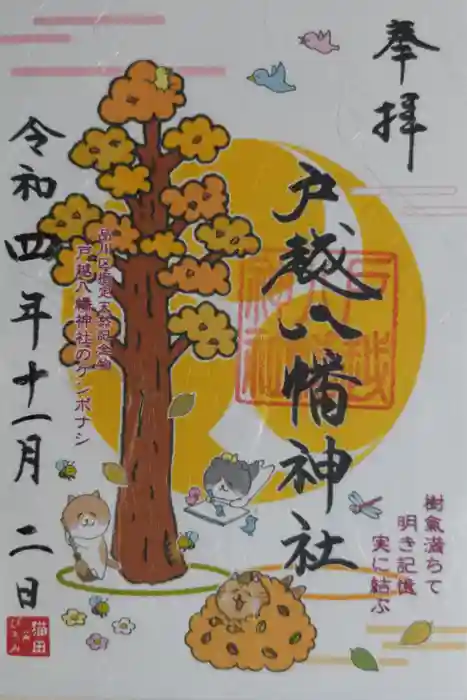 奉拝
戸越八幡神社
戸越八幡神社
樹氣満ちて
明き記憶
実に結ぶ
品川区指定天然記念物
戸越八幡神社のケンポナシ
令和四年十一月二日
猫田